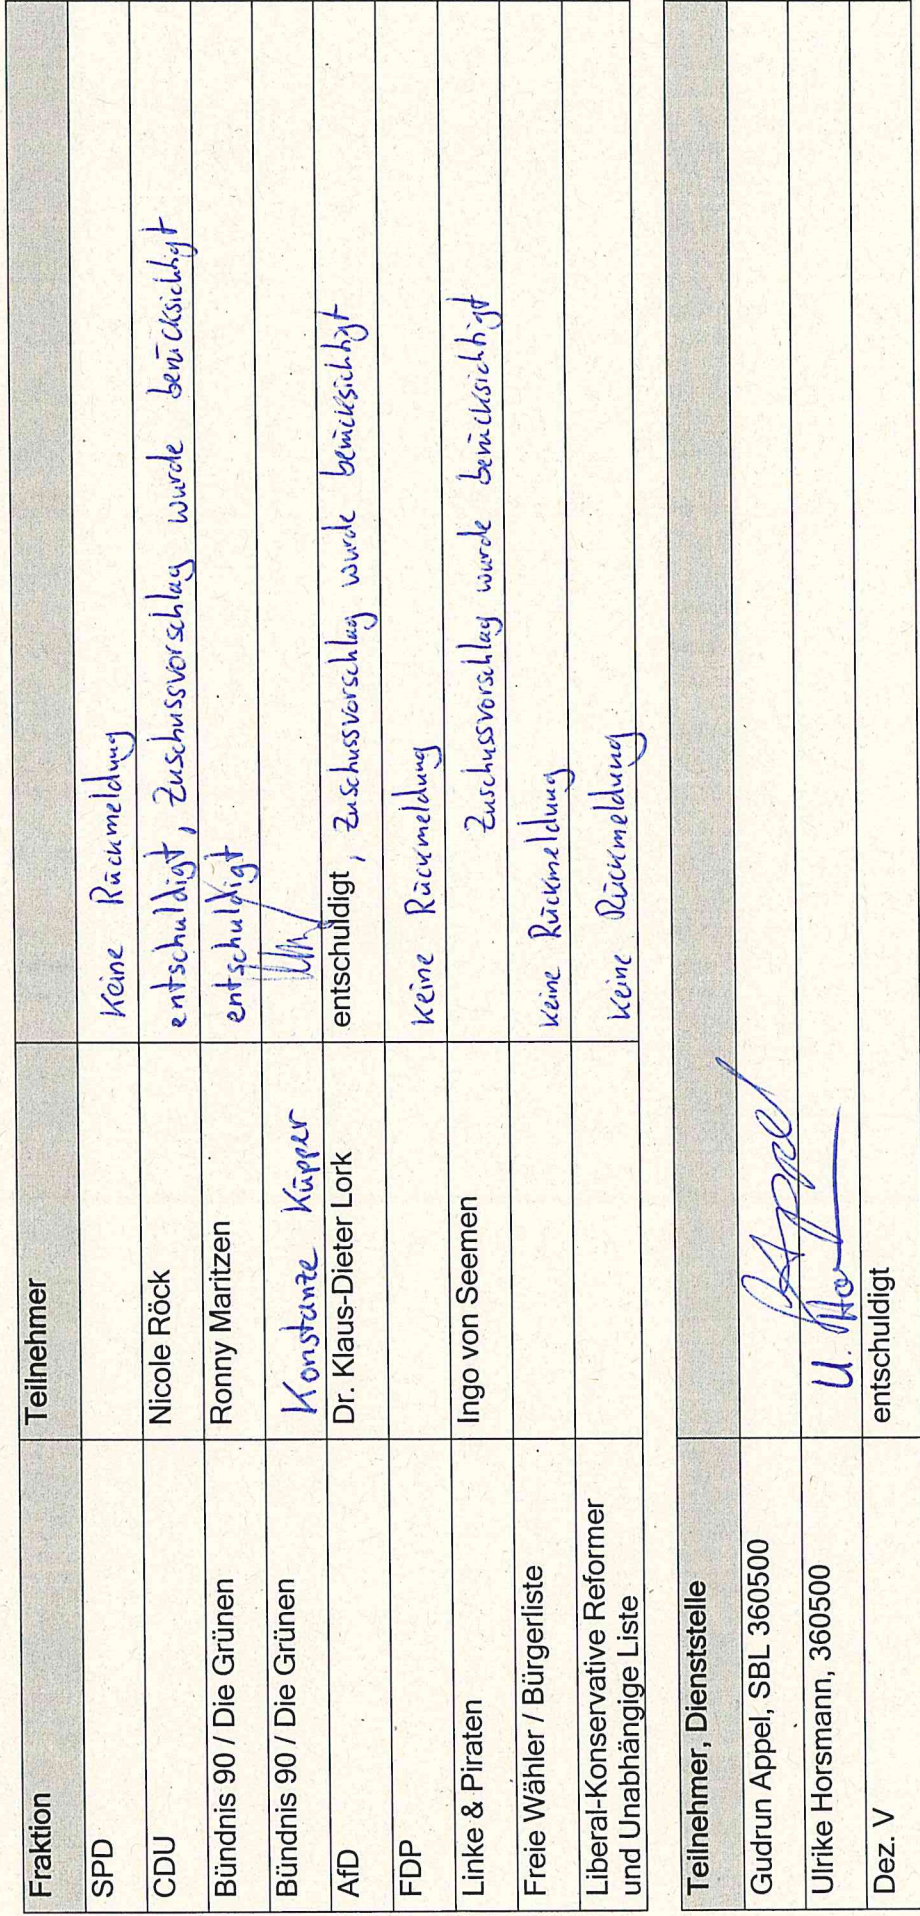 Fraktion Teilnehmer
SPD keine Rückmeldung
CDU Nicole Röck entschuldigt, Zuschussvorschlag wurde berücksichtigt
Bündnis 90 / Die Grünen Ronny Maritzen entschuldigt
Bündnis 90 / Die Grünen Konstanze Küpper
AfD Dr. Klaus-Dieter Lork entschuldigt, Zuschussvorschlag wurde berücksichtigt
FDP keine Rückmeldung
Linke & Piraten Ingo von Seemen Zuschussvorschlag wurde berücksichtigt
Freie Wähler / Bürgerliste keine Rückmeldung
Liberal-Konservative Reformer keine Rückmeldung
und Unabhängige Liste
Teilnehmer, Dienststelle
Gudrun Appel, SBL 360500 Appel
Ulrike Horsmann, 360500 U. Ho
Dez. V entschuldigt